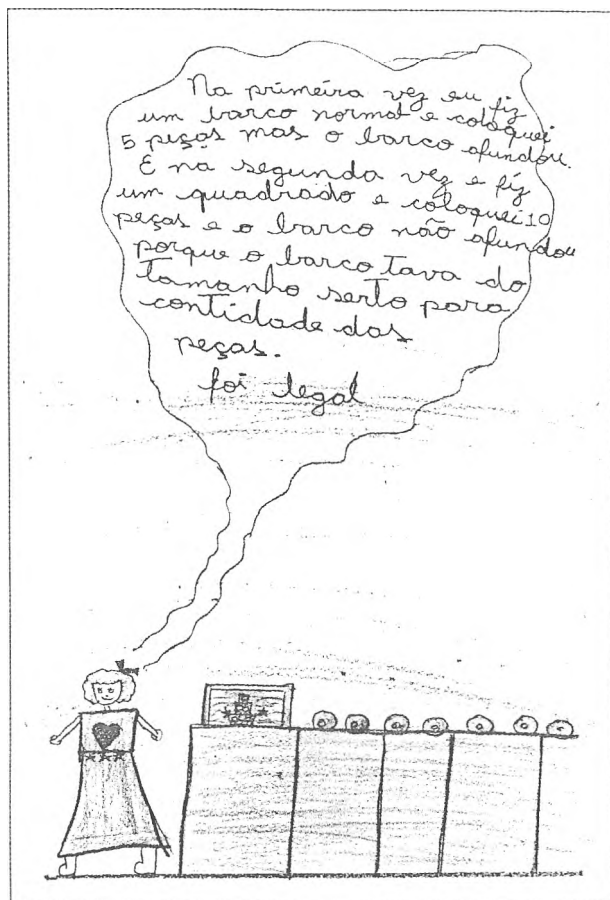 Na primeira vez eu fiz
um barco normal e coloquei
5 peças mas o barco afundou.
E na segunda vez e fiz
um quadrado e coloquei 10
peças e o barco não afundou
porque o barco tava do
tamanho serto para
contidade das
peças.
foi legal